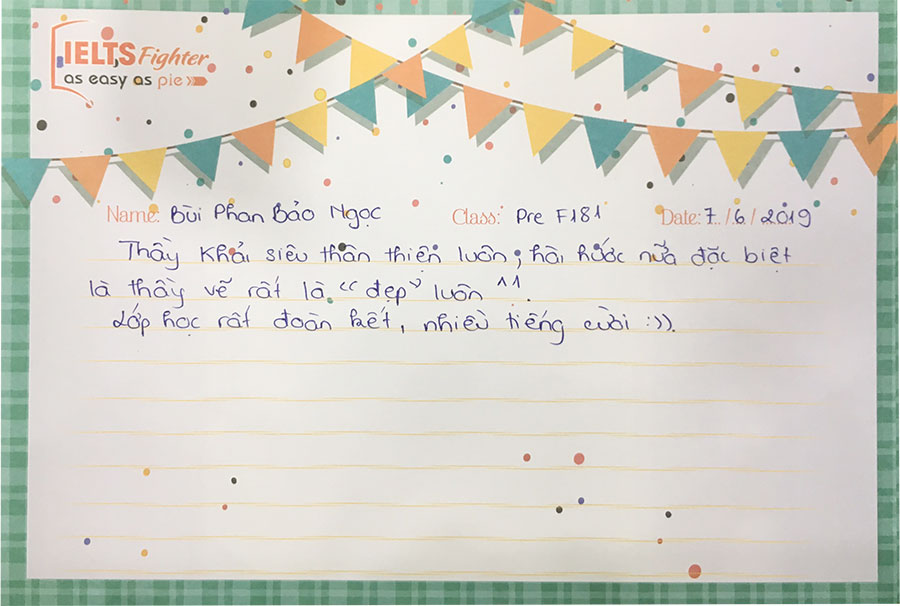 IELTS Fighter
as easy as pie
Name: Bùi Phan Bảo Ngọc Class: Pre F181 Date: 7 / 6 / 2019
Thầy Khải siêu thân thiện luôn, hài hước nữa đặc biệt
là thầy vẽ rất là "đẹp" luôn ^^.
Lớp học rất đoàn kết, nhiều tiếng cười :)).